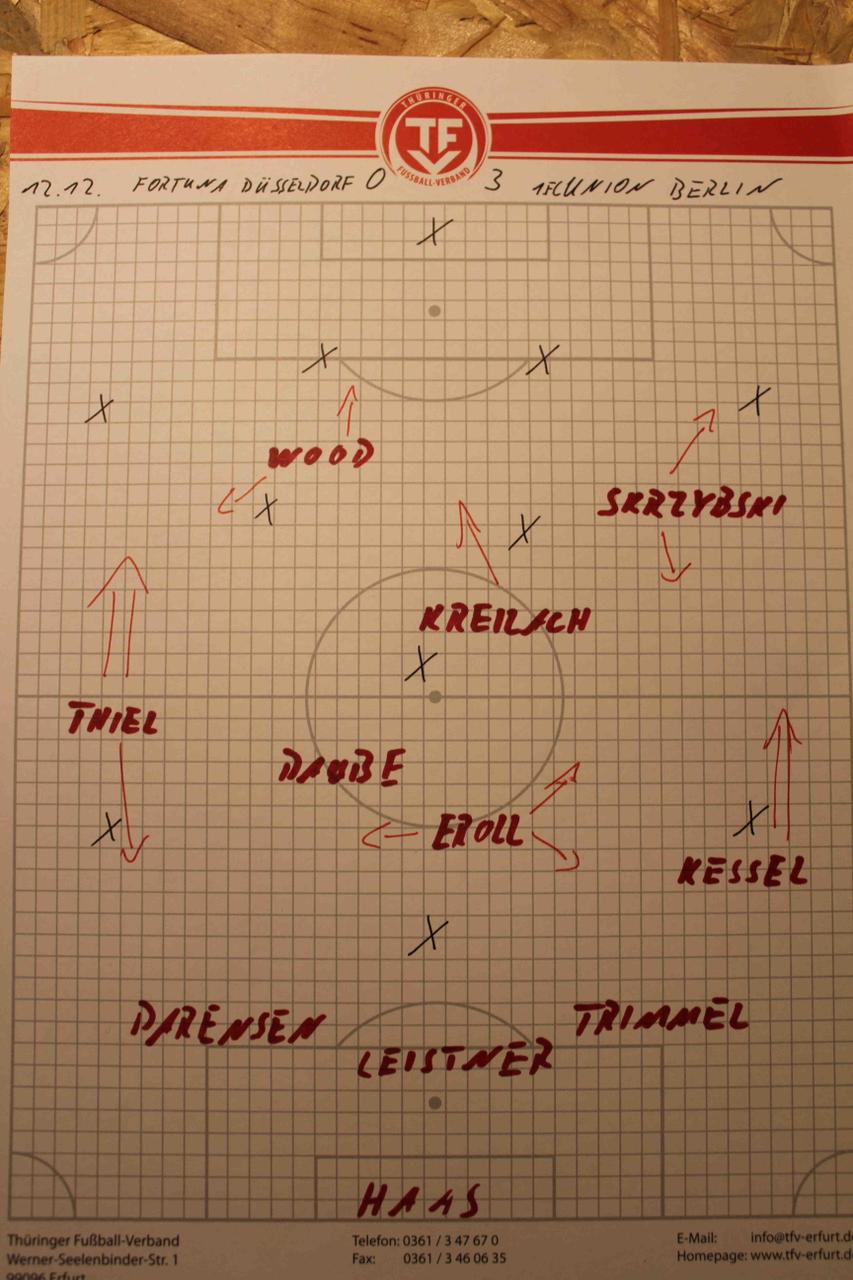 THÜRINGER
TF
FUSSBALL-VERBAND
12.12. FORTUNA DÜSSELDORF 0 3 1FCUNION BERLIN
X
X X
X X
WOOD
SKRZYBSKI
X
X
KREILACH
X
THIEL
DAUBE
X EROLL X
KESSEL
X
DARENSEN TRIMMEL
LEISTNER
HAAS
Thüringer Fußball-Verband Telefon: 0361 / 3 47 67 0 E-Mail: info@tfv-erfurt.de
Werner-Seelenbinder-Str. 1 Fax: 0361 / 3 46 06 35 Homepage: www.tfv-erfurt.de
99096 Erfurt